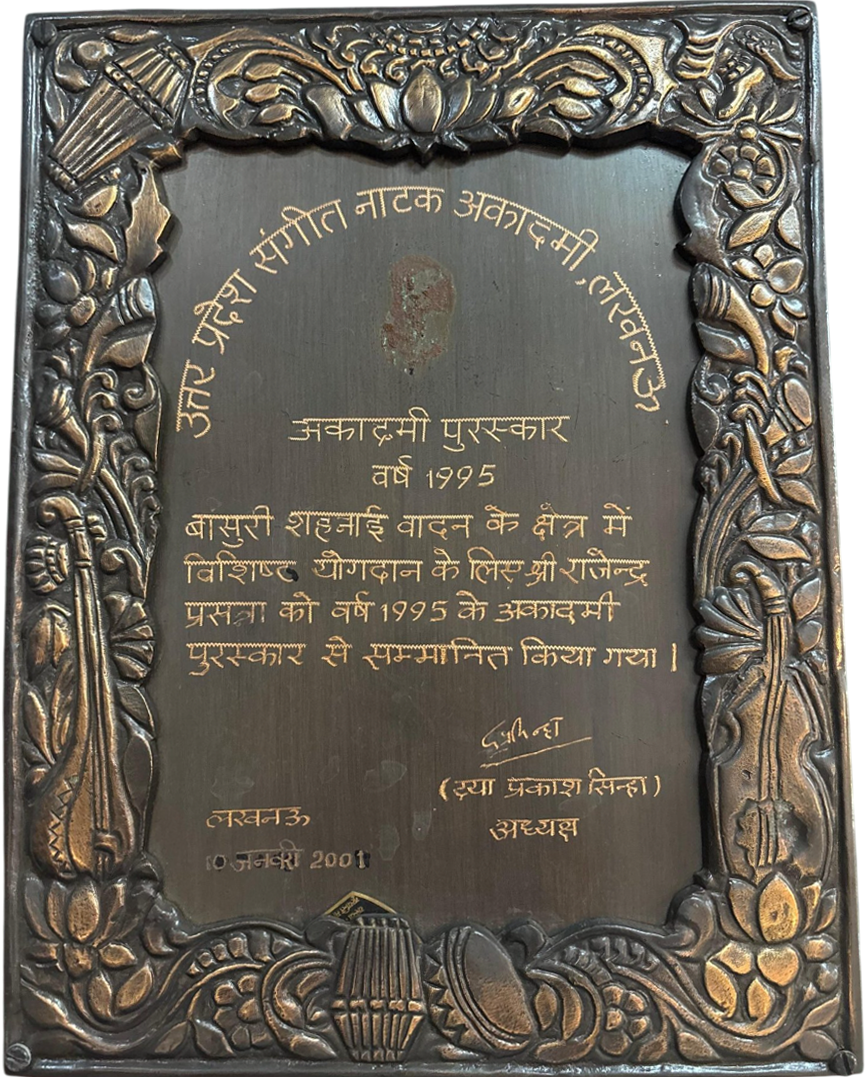 उत्तर प्रदेश संगीत नाटक अकादमी, लखनऊ
अकादमी पुरस्कार
वर्ष 1995
बांसुरी शहनाई वादन के क्षेत्र में
विशिष्ट योगदान के लिए श्री राजेन्द्र
प्रसन्ना को वर्ष 1995 के अकादमी
पुरस्कार से सम्मानित किया गया।
(दया प्रकाश सिन्हा)
अध्यक्ष
लखनऊ
10 जनवरी 2001